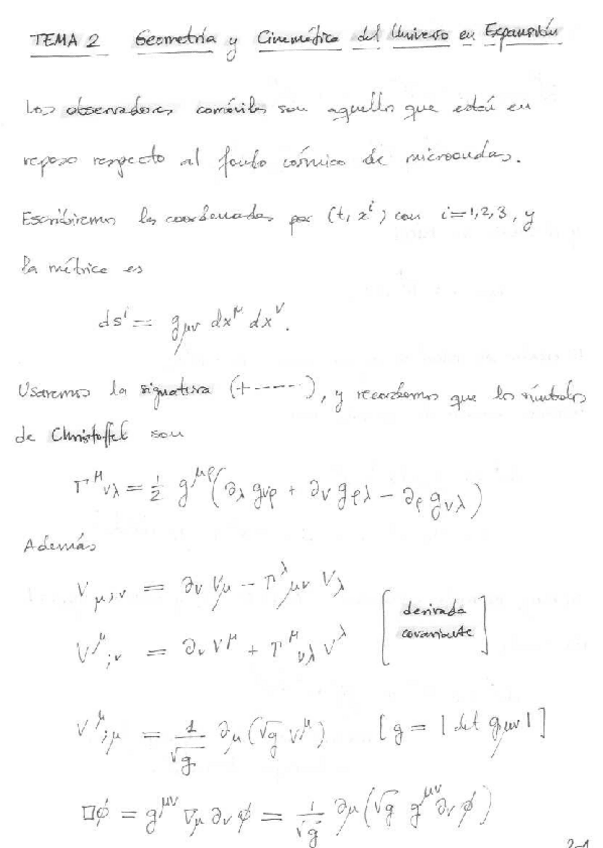 TEMA 2 Geometría y Cinemática del Universo en Expansión
Los observadores comóviles son aquellos que están en
reposo respecto al fondo cósmico de microondas.
Escribiremos las coordenadas por (t, x^i) con i=1,2,3, y
la métrica es
ds² = g_{μν} dx^μ dx^ν.
Usaremos la signatura (+----), y recordemos que los símbolos
de Christoffel son
Γ^μ_{νλ} = 1/2 g^{μρ}(∂_λ g_{νρ} + ∂_ν g_{ρλ} - ∂_ρ g_{νλ})
Además
V_{μ;ν} = ∂_ν V_μ - Γ^λ_{μν} V_λ
[derivada
V^μ_{;ν} = ∂_ν V^μ + Γ^μ_{νλ} V^λ
covariante]
V^μ_{;μ} = 1/√g ∂_μ(√g V^μ) [g = |det g_{μν}|]
□φ = g^{μν} ∇_μ ∂_ν φ = 1/√g ∂_μ(√g g^{μν} ∂_ν φ)
2-1